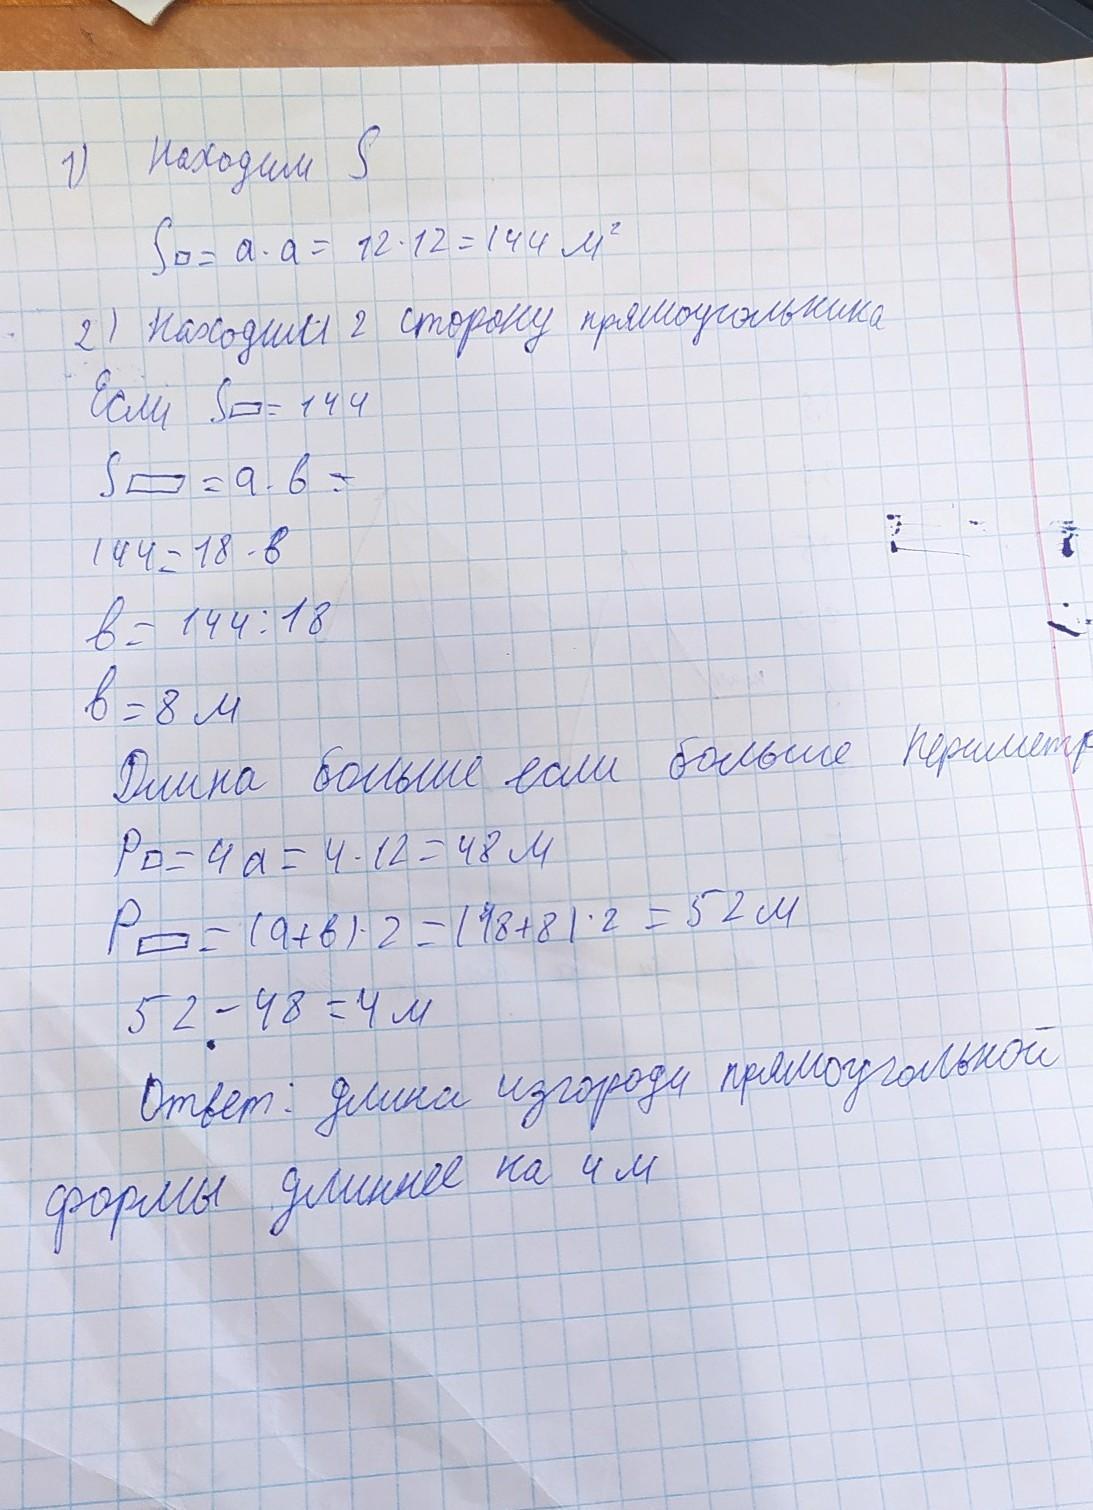 1) Находим S
S□ = a · a = 12 · 12 = 144 м²
2) Находим 2 сторону прямоугольника
Если S▭ = 144
S▭ = a · b =
144 = 18 · b
b = 144 : 18
b = 8 м
Длина больше если больше периметр
P□ = 4a = 4 · 12 = 48 м
P▭ = (a + b) · 2 = (18 + 8) · 2 = 52 м
52 - 48 = 4 м
Ответ: длина изгороди прямоугольной
формы длиннее на 4 м